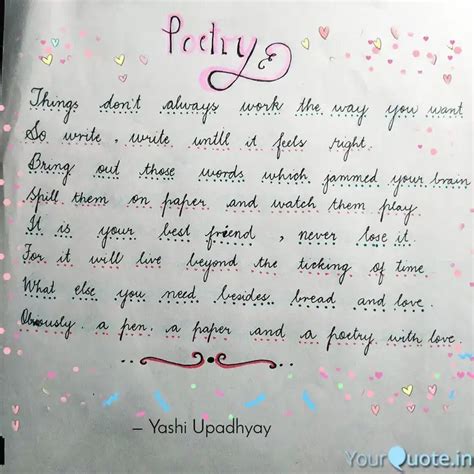 Poetry
Things don't always work the way you want
So write, write until it feels right.
Bring out those words which jammed your brain
Spill them on paper and watch them play.
It is your best friend, never lose it.
For it will live beyond the ticking of time.
What else you need besides bread and love.
Obviously. a pen. a paper and a poetry with love.
– Yashi Upadhyay
YourQuote.in